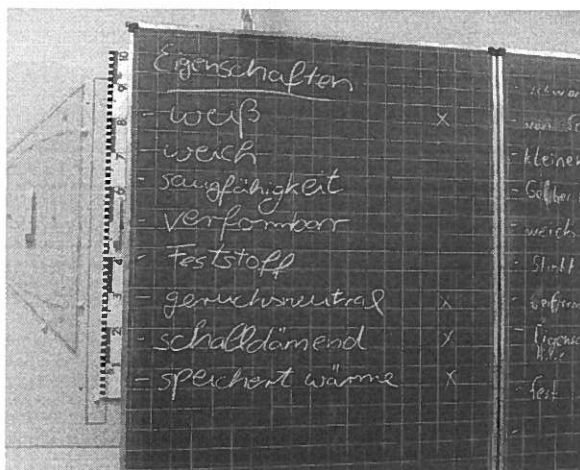 Eigenschaften
- weiß x
- weich
- saugfähigkeit
- verformbar
- Feststoff
- geruchsneutral x
- schalldämend x
- speichert wärme x
10
9
8
7
6
5
4
3
2
1
- kleiner
- weich
- Stinkt
- fest